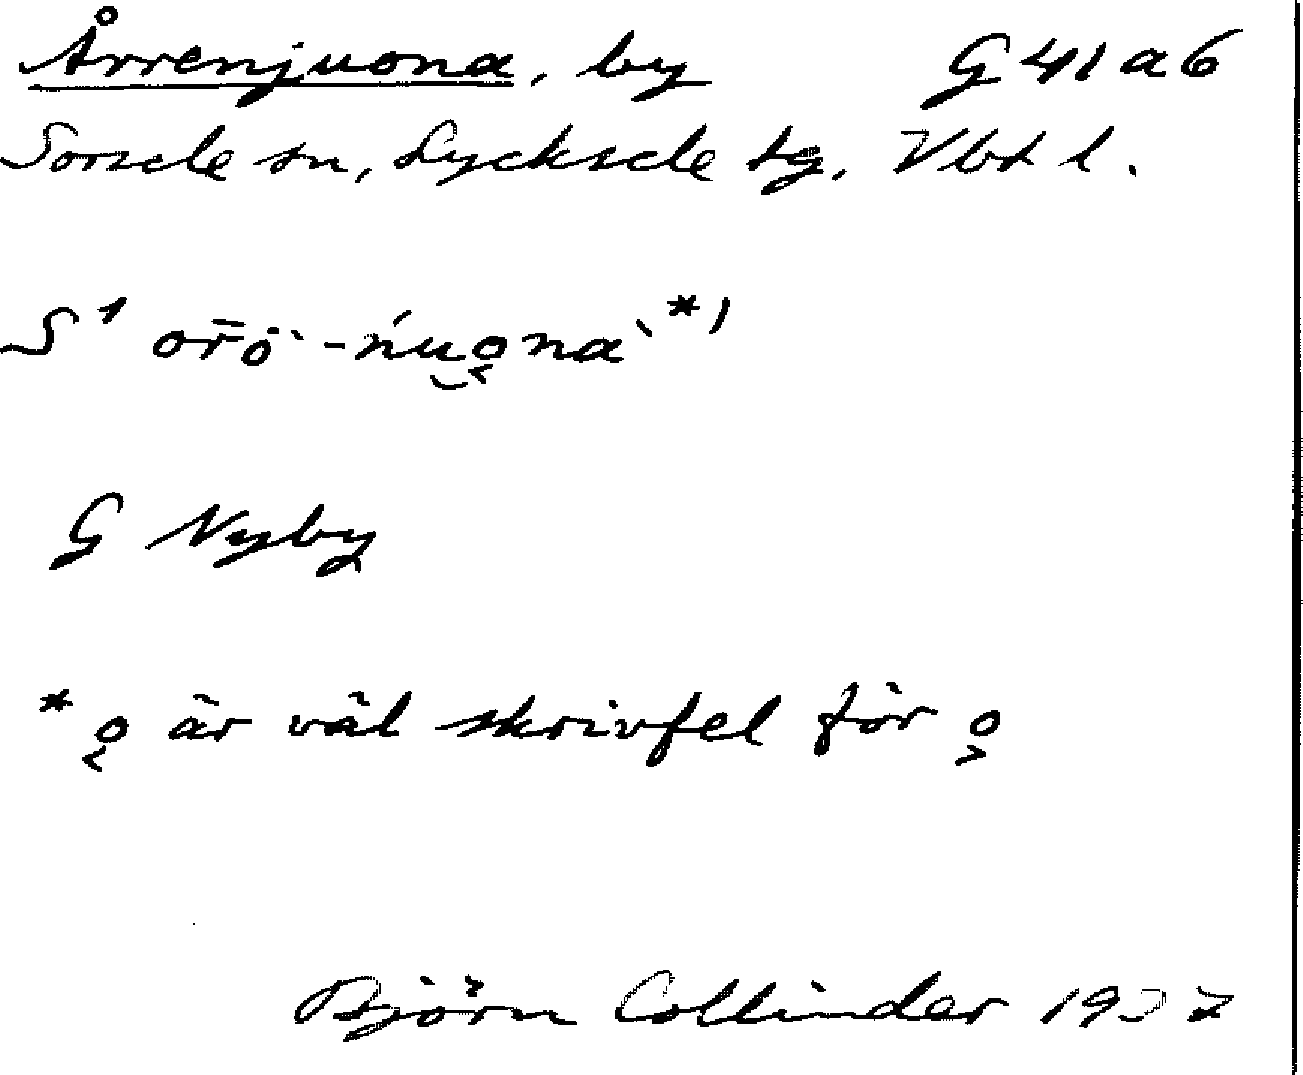 Årrenjuona, by G 41 a 6
Sorsele sn, Lycksele tg. Vbt l.
S¹ or̄ȯ̀ -ńu̯o̬nà *)
G Nyby
* o̬ är väl skrivfel för o̬
Björn Collinder 1937